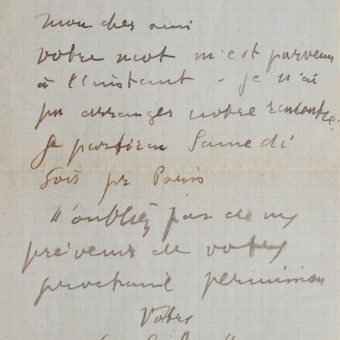 mon cher ami
votre mot m'est parvenu
à l'instant - je n'ai
pu arranger notre rencontre.
Je partirai Samedi
Soir pr Paris
N'oubliez pas de me
prévenir de votre
prochaine permission
Votre